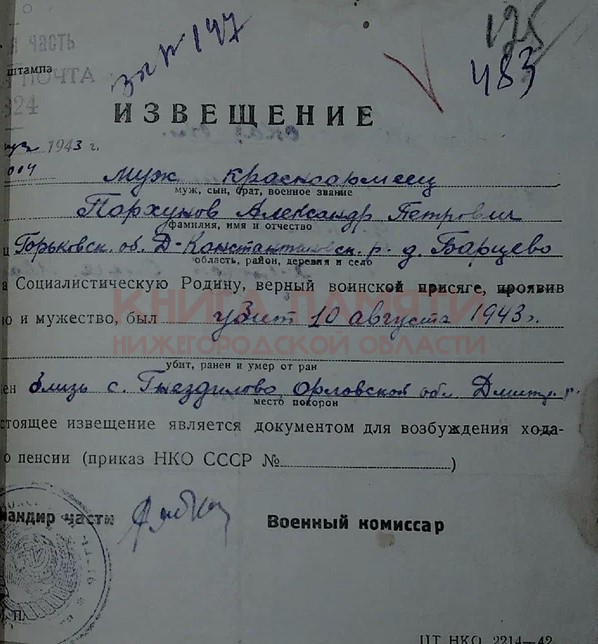 зп № 147
125
483
я часть
штампа
ПОЧТА
324
ИЗВЕЩЕНИЕ
1943 г.
004
муж красноармеец
муж, сын, брат, военное звание
Пархунов Александр Петрович
фамилия, имя и отчество
Горьковск. об. Д-Константиновск. р. д. Барцево
область, район, деревня и село
а Социалистическую Родину, верный воинской присяге, проявив
КНИГА ПАМЯТИ
о и мужество, был убит 10 августа 1943 г.
НИЖЕГОРОДСКОЙ ОБЛАСТИ
убит, ранен и умер от ран
ен близь с. Гнездилово, Орловской обл. Дмитр. р.
место похорон
стоящее извещение является документом для возбуждения хода-
о пенсии (приказ НКО СССР № )
мандир части
Военный комиссар
ЦТ НКО 2214—42